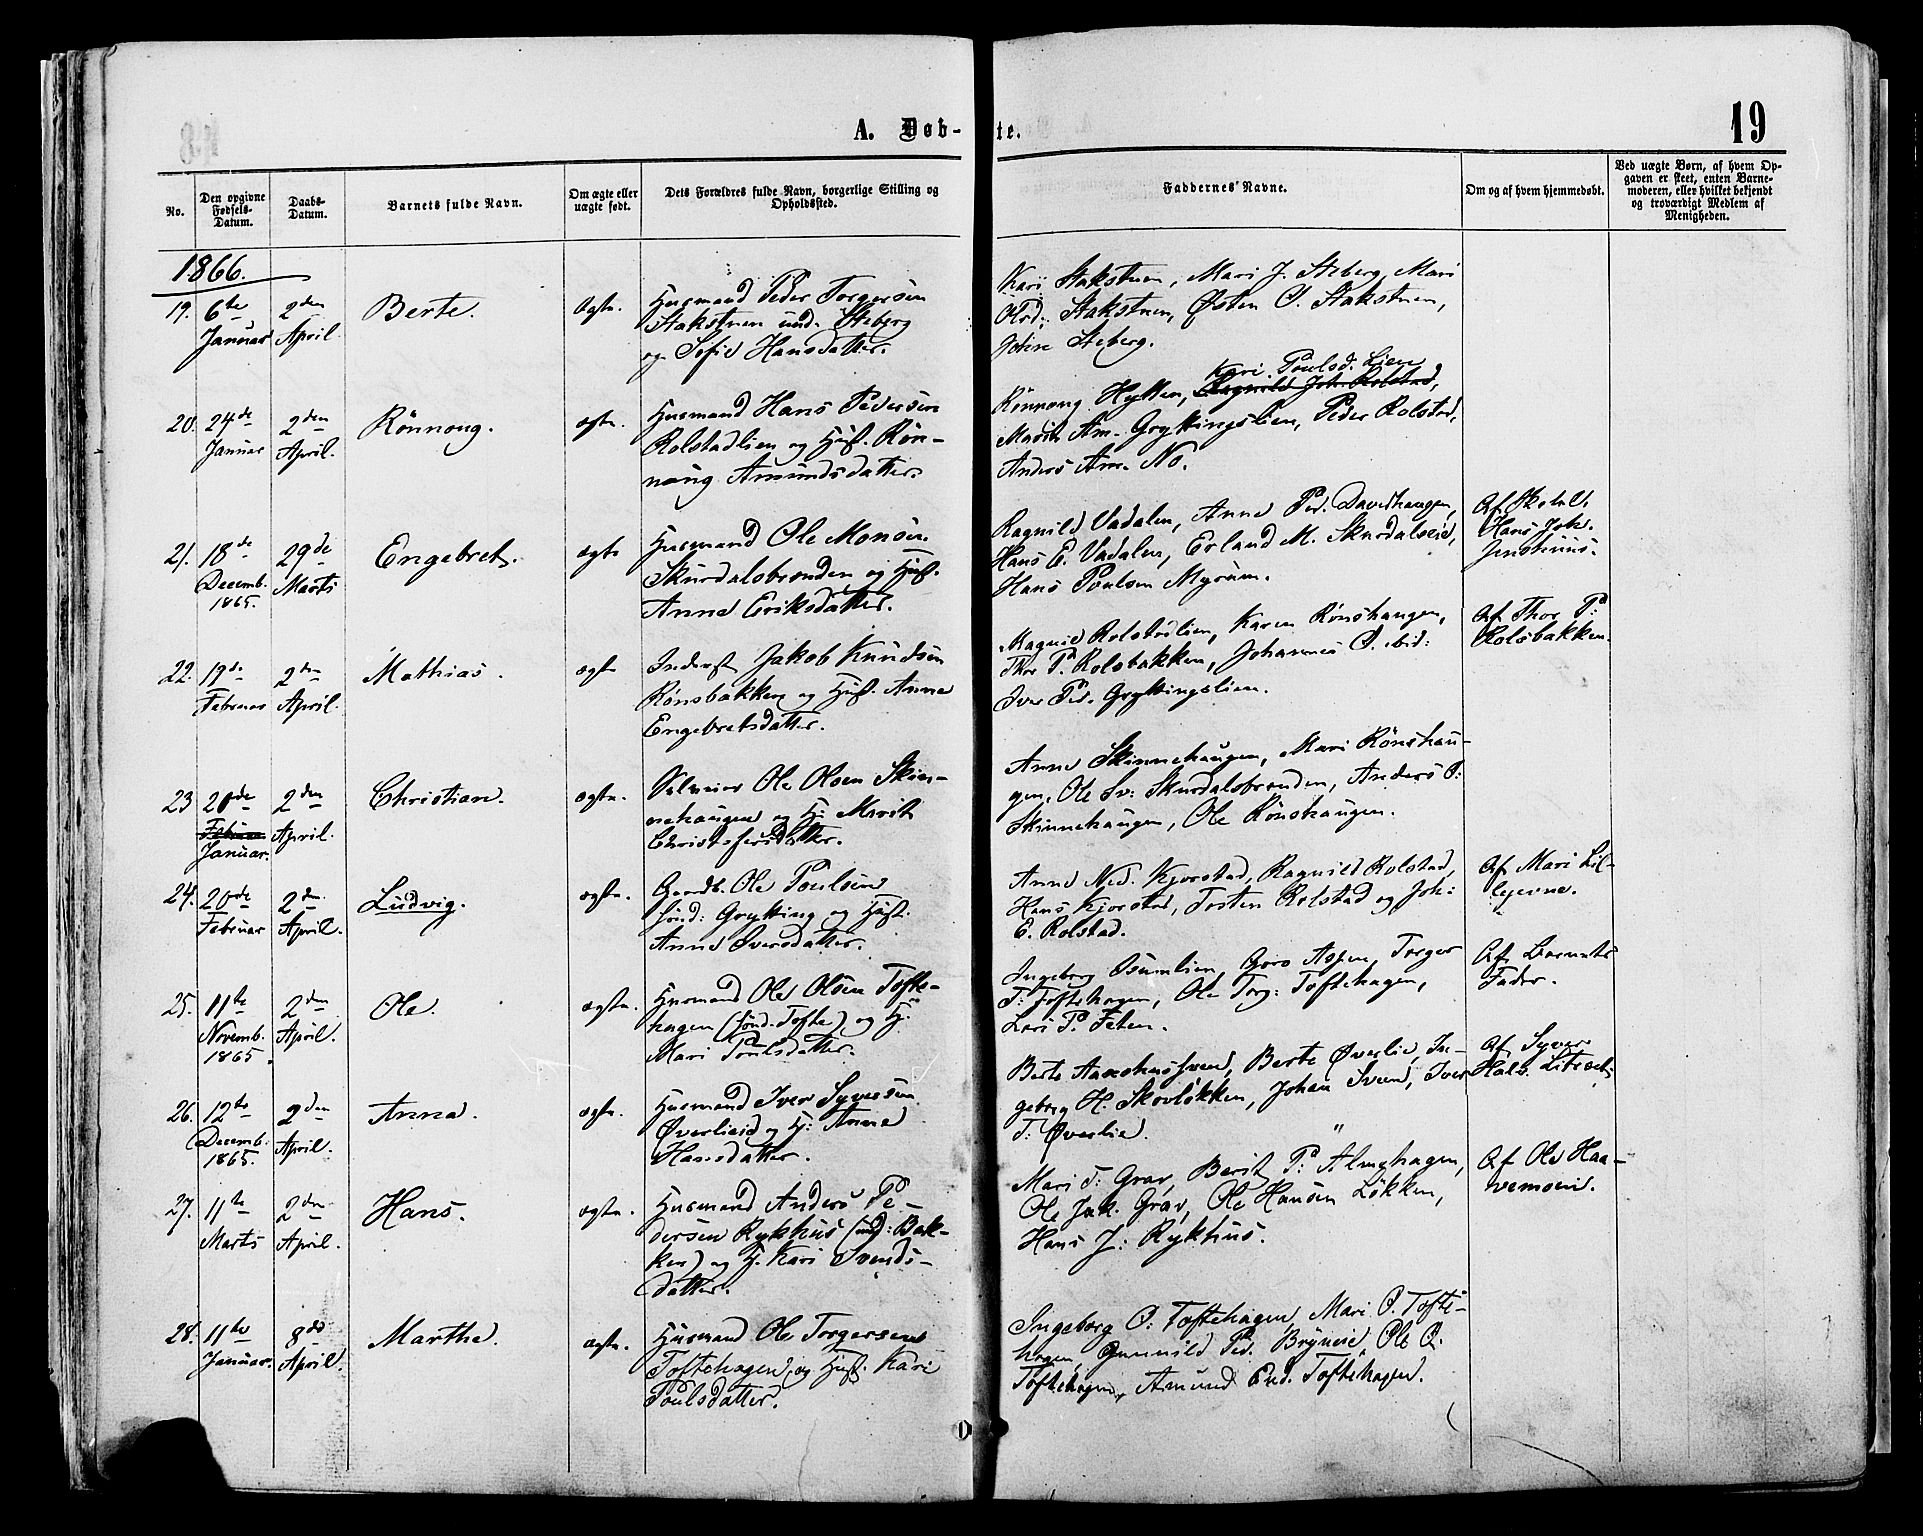 A. Døb-
te.
19
No.
Den opgivne Fødsels-Datum.
Daabs-Datum.
Barnets fulde Navn.
Om ægte eller uægte født.
Dets Forældres fulde Navn, borgerlige Stilling og Opholdssted.
Faddernes Navne.
Om og af hvem hjemmedøbt.
Ved uægte Børn, af hvem Op-
gaven er skeet, enten Barne-
moderen, eller hvilket bekjendt
og troværdigt Medlem af
Menigheden.
1866.
19. 6te Januar 2den April. Berte. ægte.
Husmand Peder Torgersen
Stakstuen und. Steberg
og Sofie Hansdatter.
Kari Stakstuen, Mari J. Steberg, Mari
Olsd: Stakstuen, Østen O. Stakstuen,
Steberg.
20. 24de Januar 2den April. Rønnoug. ægte.
Husmand Hans Pedersen
Rolstadlien og Hust. Røn-
noug Amundsdatter.
Kari Poulsd. Lien
Rønnoug Hytten, Ragnild Joh. Rolstad,
Marit Am. Gryttingslien, Peder Rolstad,
Anders Am. No.
21. 18de Decemb. 1865. 29de Marts Engebret. ægte
Husmand Ole Monsen
Skurdalsbrenden og Hust.
Anne Eriksdatter.
Ragnild Vadalen, Anne Ped. Davidhaugen,
Hans E. Vadalen, Erland M. Skurdalseie,
Hans Poulsen Myrum.
Af Skolel.
Hans Joh.
Jenshuus.
22. 19de Februar 2den April. Mathias. ægte
Inderst Jakob Knudsen
Rønsbakken og Hust. Anne
Engebretsdatter.
Magnil Rolstadlien, Karen Rønshaugen,
Thor P. Rolsbakken, Johannes O. ibid:
Iver Ped. Gryttingslien.
Af Thor P:
Rolsbakken.
23 20de Februar Januar. 2den April. Christian. ægte.
Selveier Ole Olsen Skin-
nehaugen og H: Marit
Christofersdatter.
Anne Skinnehaugen, Mari Rønshau-
gen, Ole Sv: Skurdalsbrenden, Anders O:
Skinnehaugen, Ole Rønshaugen.
24. 20de Februar 2den April. Ludvig. ægte.
Gaardb. Ole Poulsen
sønd: Grytting og Hust.
Anne Iversdatter.
Anne Ned. Kjorstad, Ragnild Rolstad,
Hans Kjorstad, Torsten Rolstad og Joh:
E. Rolstad.
Af Mari Lil-
25. 11te Novemb. 1865. 2den April. Ole. ægte.
Husmand Ole Olsen Tofte-
hagen (sønd. Tofte) og H:
Mari Poulsdatter.
Ingeborg Isumlien, Goro Aspen, Torger
T: Toftehagen, Ole Torg: Toftehagen,
Lars P. Feten.
Af Barnets
Fader.
26. 12te Decemb. 1865. 2den April. Anna. ægte.
Husmand Iver Syversen
Øverlieie og H: Anne
Hansdatter.
Berte, Berte Øverlie, In-
geborg H. Skovløkken, Johan Sveen, Iver
T: Øverlie.
Af Syver
Halv.
27. 11te Marts 2den April. Hans. ægte.
Husmand Anders Pe-
dersen Rykhus (und: Bak-
ken) og H. Kari Svends-
datter.
Mari T: Grav, Berit P: Almehagen,
Ole Jak. Grav, Ole Hansen Løkken,
Hans J: Rykhus.
Af Ole Haa-
vemoen.
28. 11te Januar. 8de April. Marthe. ægte.
Husmand Ole Torgersen
Toftehagen og Hust. Kari
Poulsdatter.
Ingeborg O: Toftehagen, Mari O. Tofte-
hagen, Gunnild Ped. Bryneie, Ole O.
Toftehagen, Amund End. Toftehagen.